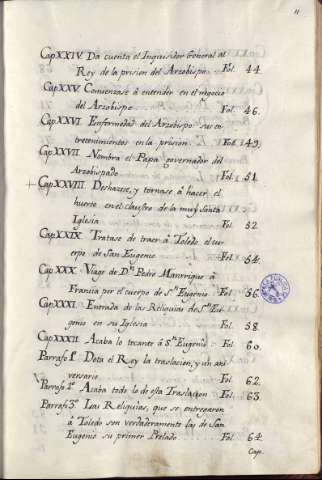 11
Cap XXIV. Da cuenta el Inquisidor General al
Rey de la prision del Arzobispo. Fol. 44.
Cap XXV. Comienzase à entender en el negocio
del Arzobispo. Fol. 46.
Cap XXVI. Enfermedad del Arzobispo: sus en
tretenimientos en la prision. Fol. 49.
Cap XXVII. Nombra el Papa governador del
Arzobispado. Fol. 51.
+ Cap XXVIII. Deshacese, y tornase à hacer el
huerto en el claustro de la muy Santa
Iglesia. Fol. 52.
Cap XXIX. Tratase de traer à Toledo el cu
erpo de San Eugenio. Fol. 54.
Cap XXX. Viage de Dn. Pedro Manrrique à
Francia por el cuerpo de Sn. Eugenio. Fol. 56.
Cap XXXI. Entrada de las Reliquias de Sn. Eu
genio en su Iglesia. Fol. 58.
Cap XXXII. Acaba lo tocante à Sn. Eugenio. Fol. 60.
Parrafo 1º. Dota el Rey la traslacion, y un ani
versario. Fol. 62.
Parrafo 2º. Acaba todo lo de esta Traslacion. Fol. 63.
Parrafo 3º. Las Reliquias, que se entregaron
à Toledo son verdaderamente las de San
Eugenio su primer Prelado. Fol. 64.
Cap.